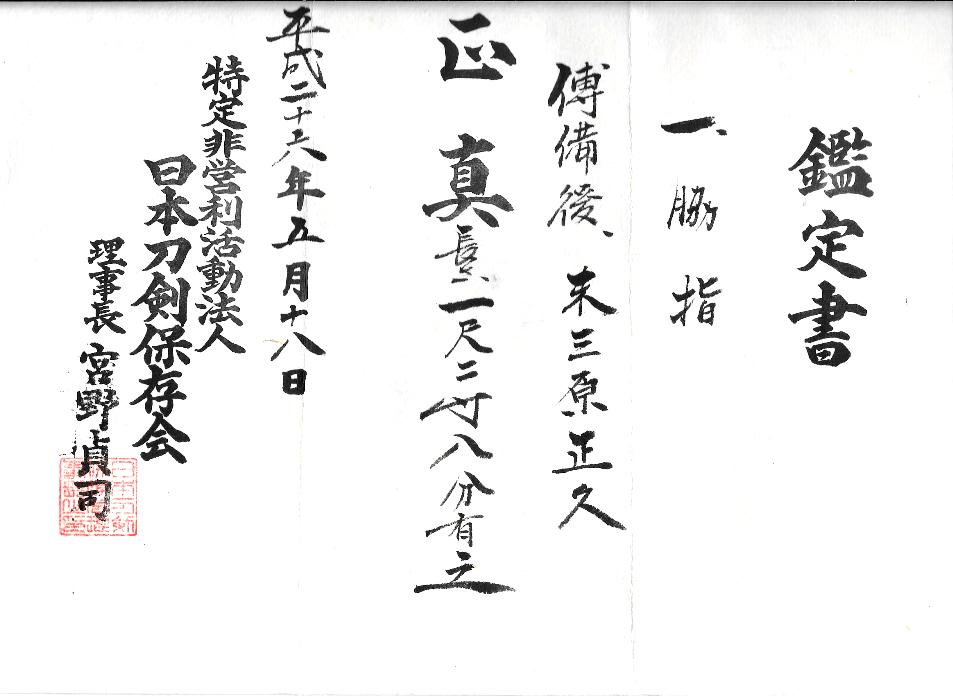 鑑定書
一、脇指
傳備後、末三原正久
正真 長サ、一尺二寸八分有之
平成二十六年五月十八日
特定非営利活動法人
日本刀剣保存会
理事長 宮野貞司